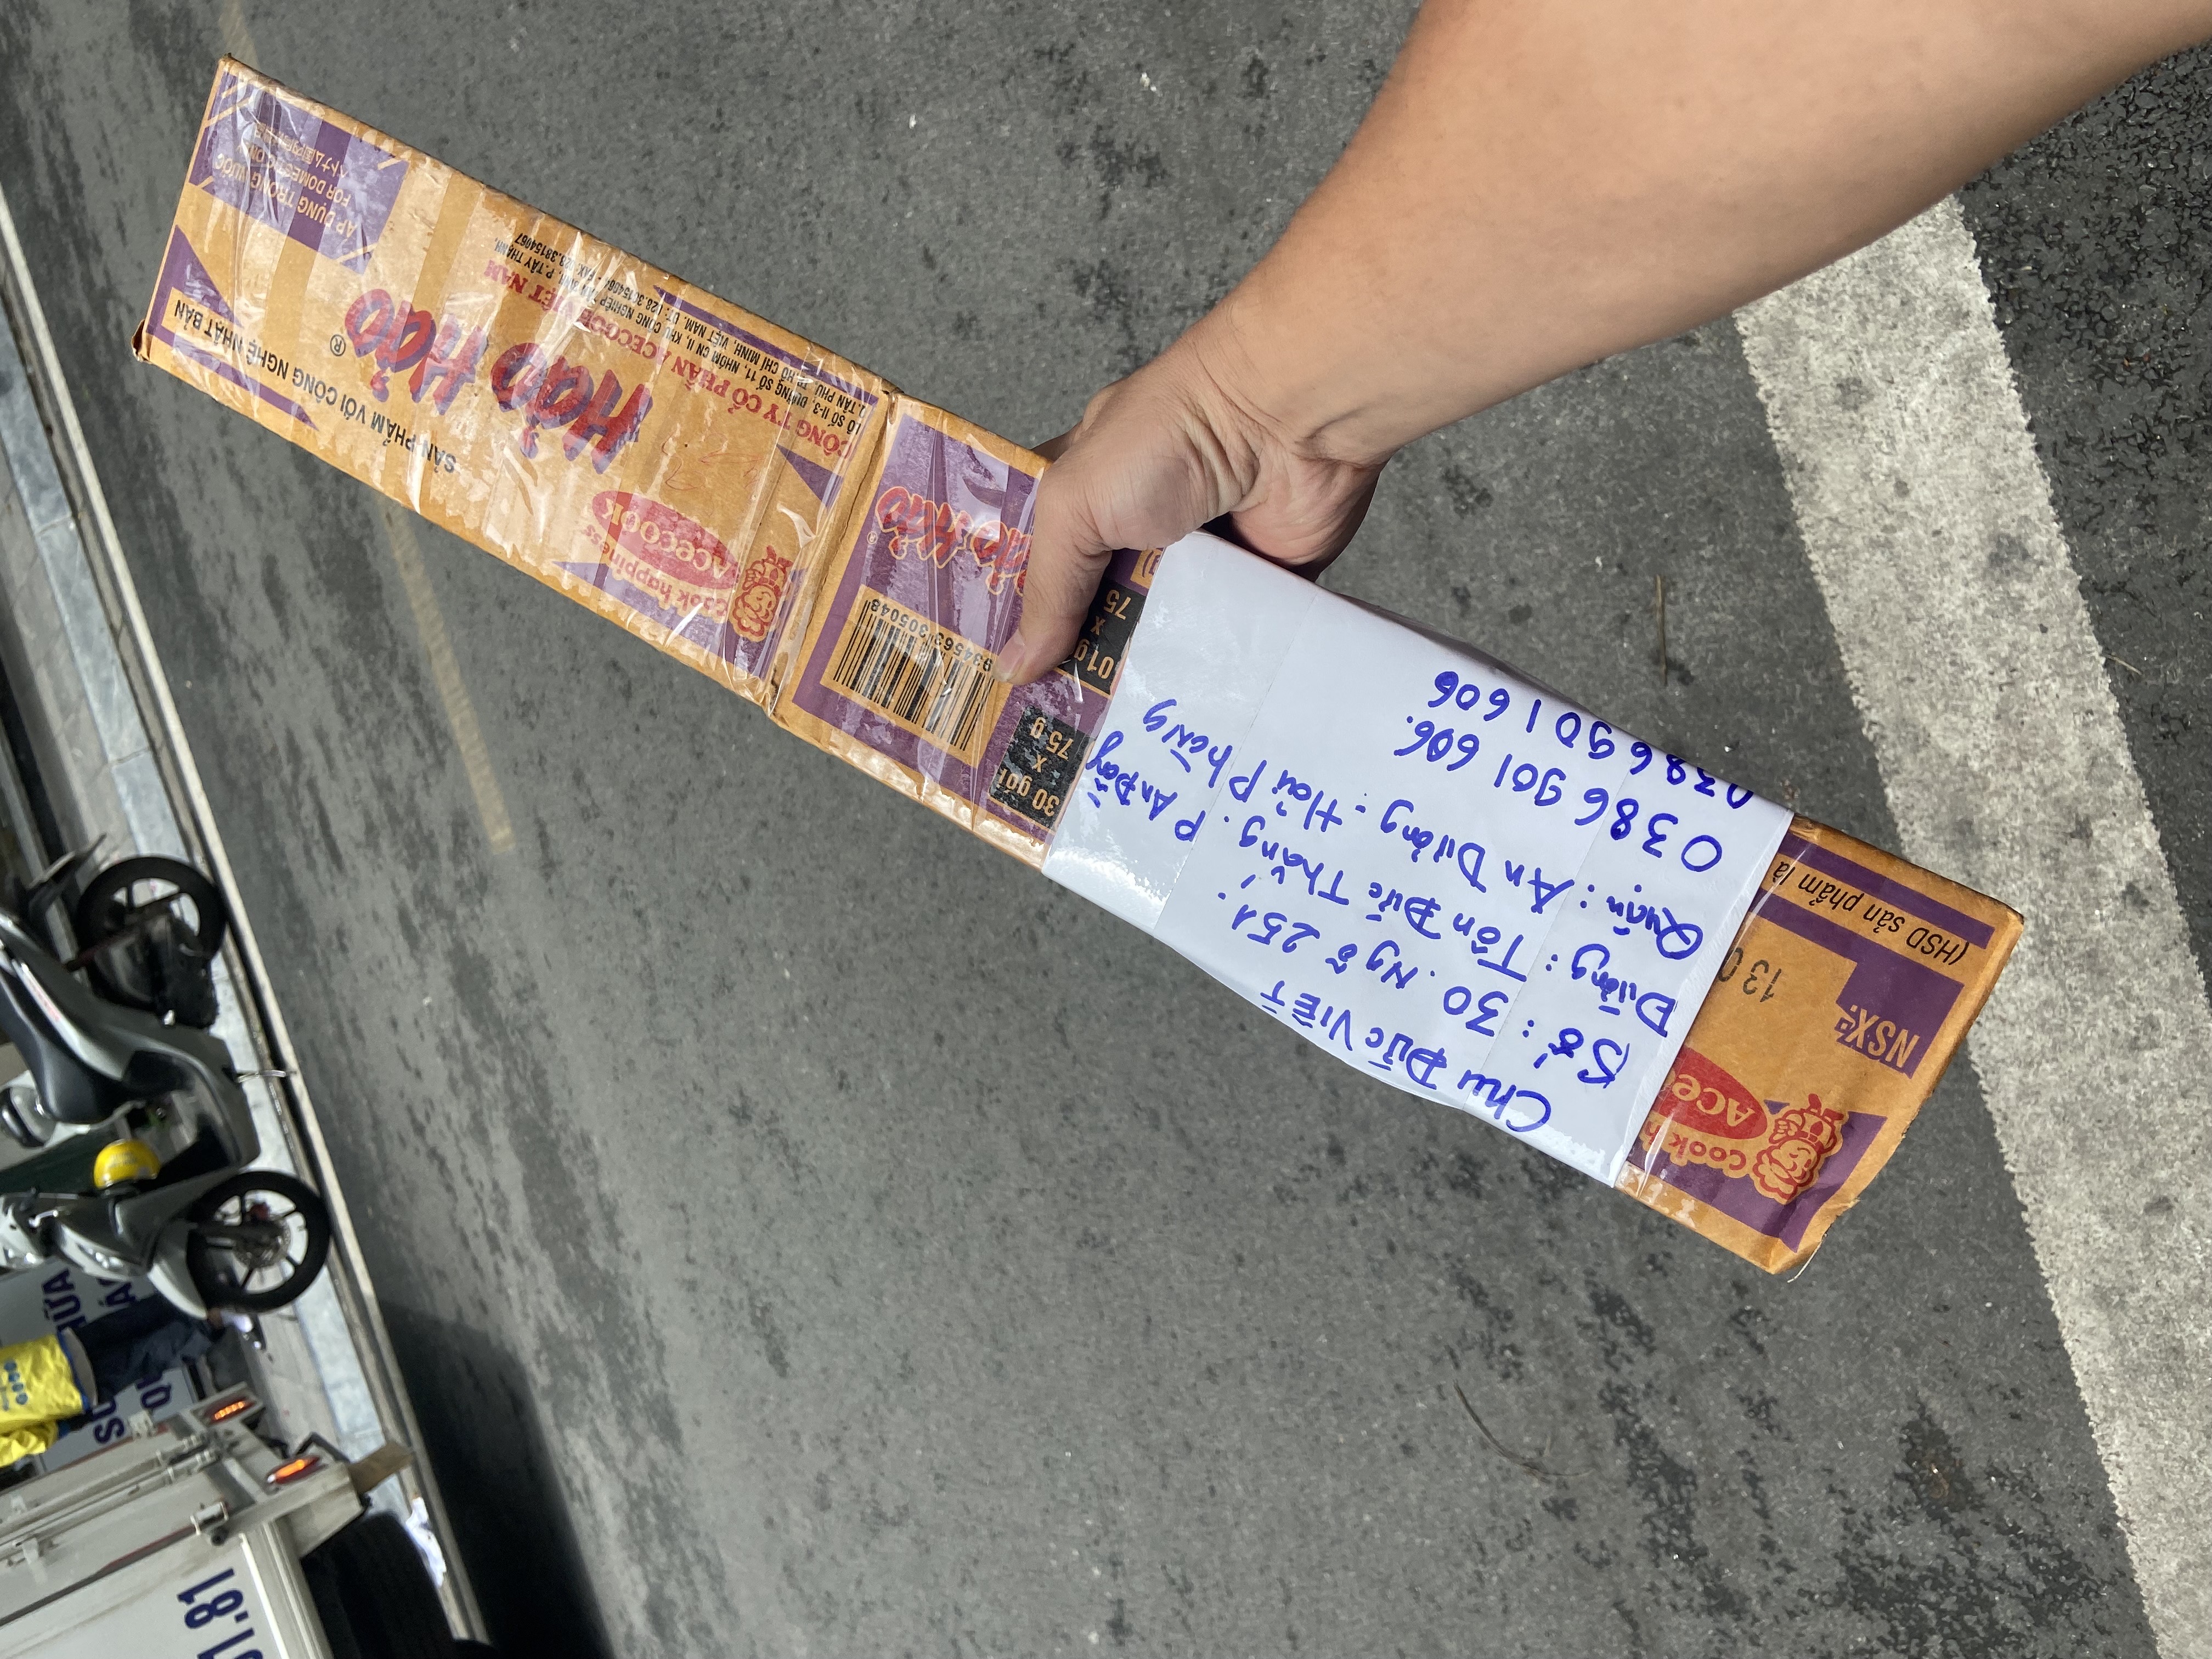 CHU ĐỨC VIỆT
Số: 30. Ngõ 251.
Đường: Tôn Đức Thắng. P An Đồng
Quận: An Dương - Hải Phòng
0386 901 606.
0386 901 606
cook happiness
Acecook
SẢN PHẨM VỚI CÔNG NGHỆ NHẬT BẢN
Hảo Hảo®
CÔNG TY CỔ PHẦN ACECOOK VIỆT NAM
LÔ SỐ II-3, ĐƯỜNG SỐ 11, NHÓM CN II, KHU CÔNG NGHIỆP TÂN BÌNH, P.TÂY THẠNH,
Q.TÂN PHÚ, TP.HỒ CHÍ MINH, VIỆT NAM. ĐT: 028.38154064 - FAX: 028.38154067
ÁP DỤNG TRONG NƯỚC
FOR DOMESTIC ON
ベトナム国内
30 gói
x
75 g
x
75
Hảo Hảo®
8934563305048
cook h
Ace
NSX:
13 0
(HSD sản phẩm là
1.81